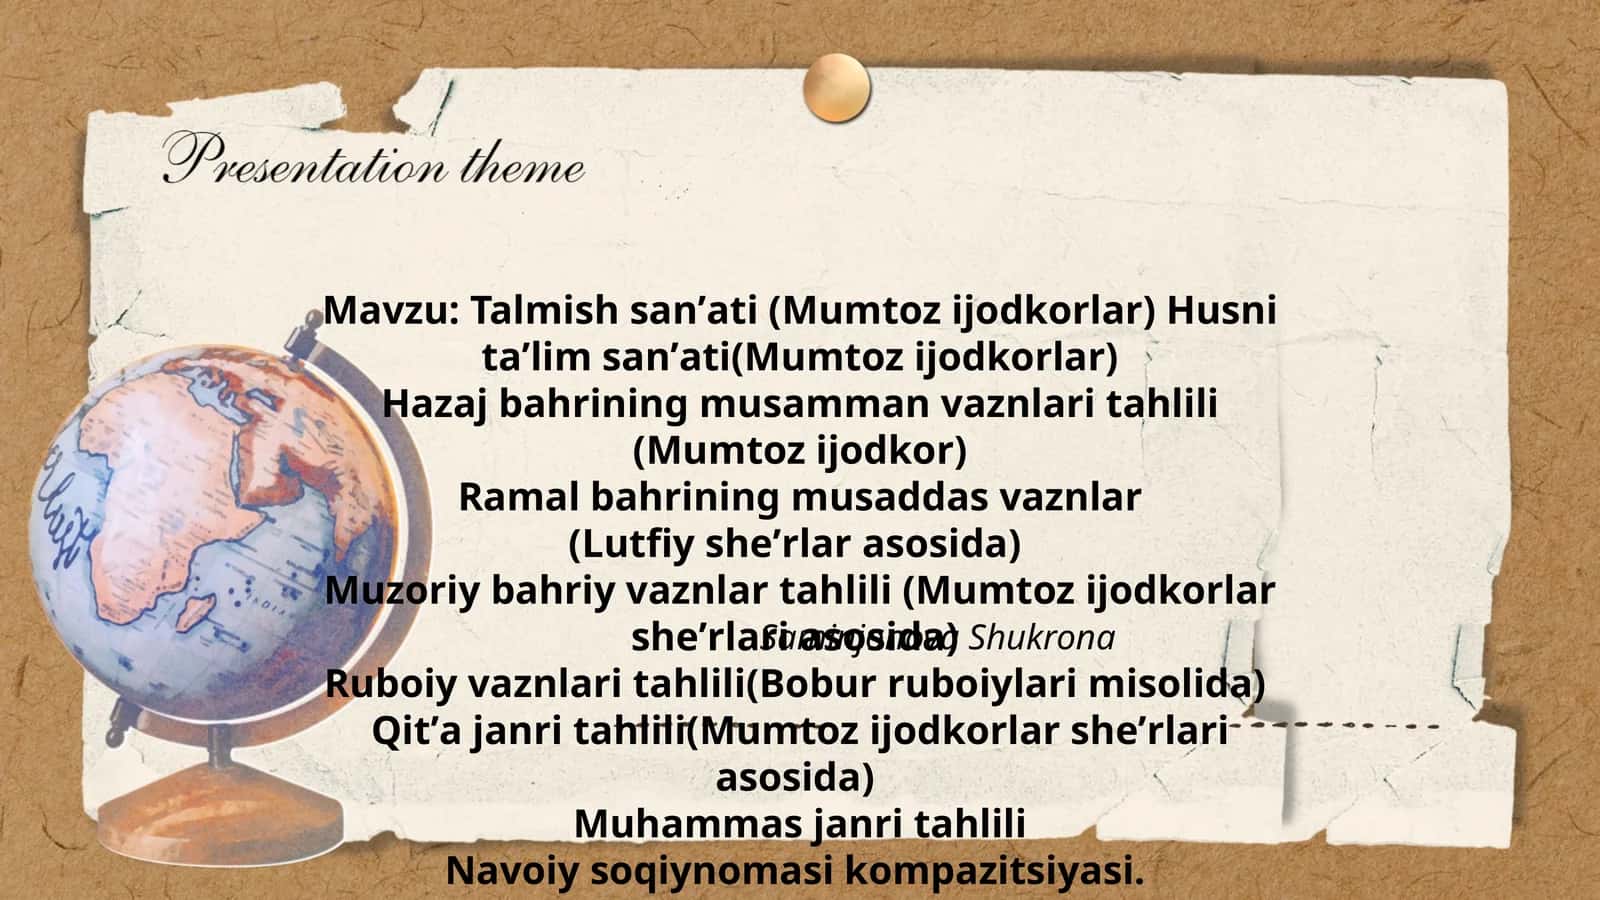 Presentation theme
Mavzu: Talmish san’ati (Mumtoz ijodkorlar) Husni
ta’lim san’ati(Mumtoz ijodkorlar)
Hazaj bahrining musamman vaznlari tahlili
(Mumtoz ijodkor)
Ramal bahrining musaddas vaznlar
(Lutfiy she’rlar asosida)
Muzoriy bahriy vaznlar tahlili (Mumtoz ijodkorlar
she’rlari asosida)
Shukrona
Ruboiy vaznlari tahlili(Bobur ruboiylari misolida)
Qit’a janri tahlili(Mumtoz ijodkorlar she’rlari
asosida)
Muhammas janri tahlili
Navoiy soqiynomasi kompazitsiyasi.